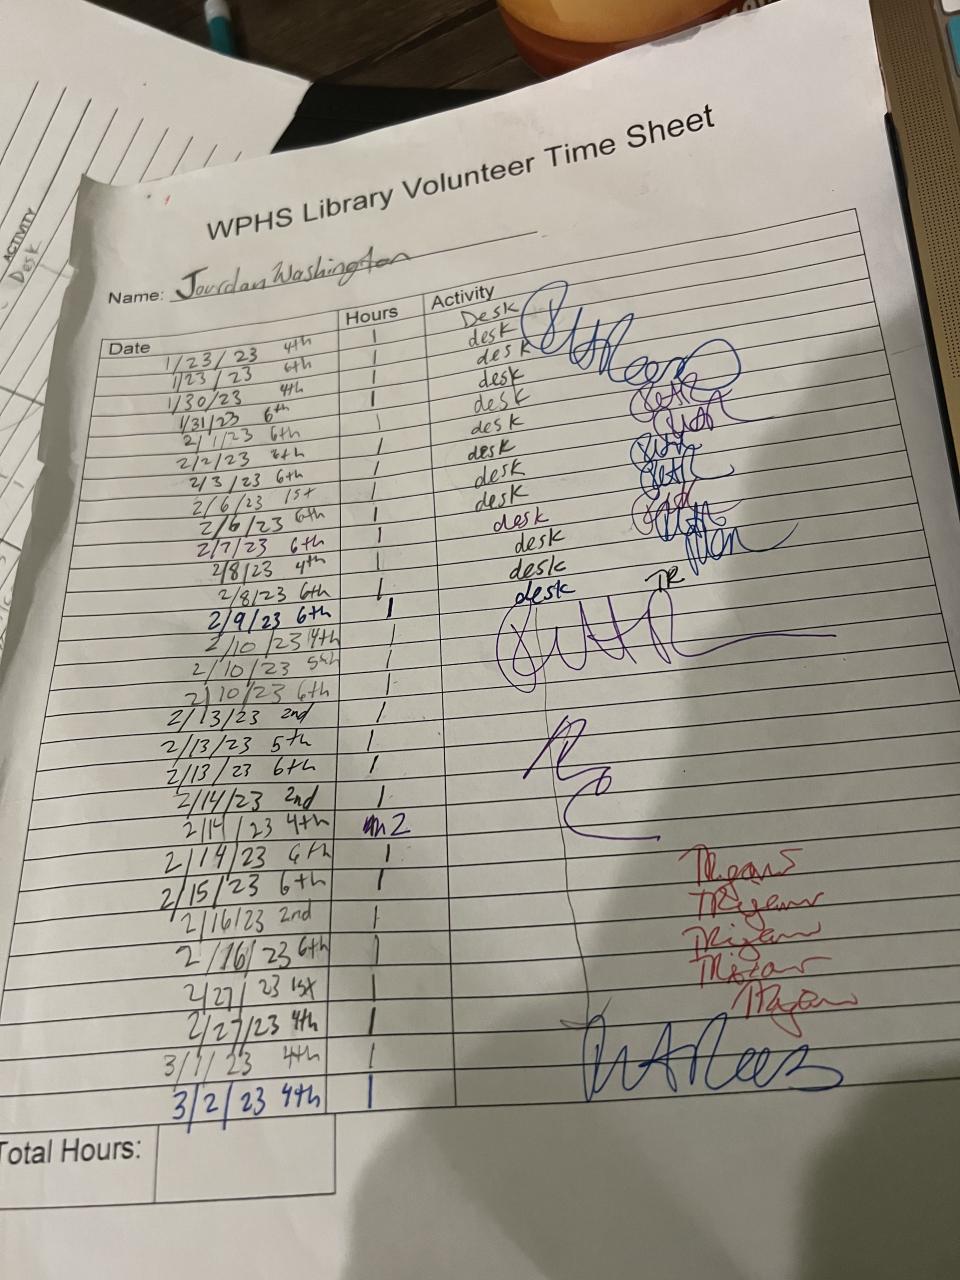 ACTIVITY
Desk
WPHS Library Volunteer Time Sheet
Name: Jourdan Washington
Date Hours Activity
1/23/23 4th 1 Desk
1/23/23 6th 1 desk
1/30/23 4th 1 desk
1/31/23 6th 1 desk
2/1/23 6th 1 desk
2/2/23 6th 1 desk
2/3/23 6th 1 desk
2/6/23 1st 1 desk
2/6/23 6th 1 desk
2/7/23 6th 1 desk
2/8/23 4th 1 desk
2/8/23 6th 1 desk
2/9/23 6th 1 desk TR
2/10/23 4th 1
2/10/23 5th 1
2/10/23 6th 1
2/13/23 2nd 1
2/13/23 5th 1
2/13/23 6th 1
2/14/23 2nd 1
2/14/23 4th 2
2/14/23 6th 1
2/15/23 6th 1
2/16/23 2nd 1
2/16/23 6th 1
2/27/23 1st 1
2/27/23 4th 1
3/1/23 4th 1
3/2/23 4th 1
Total Hours: